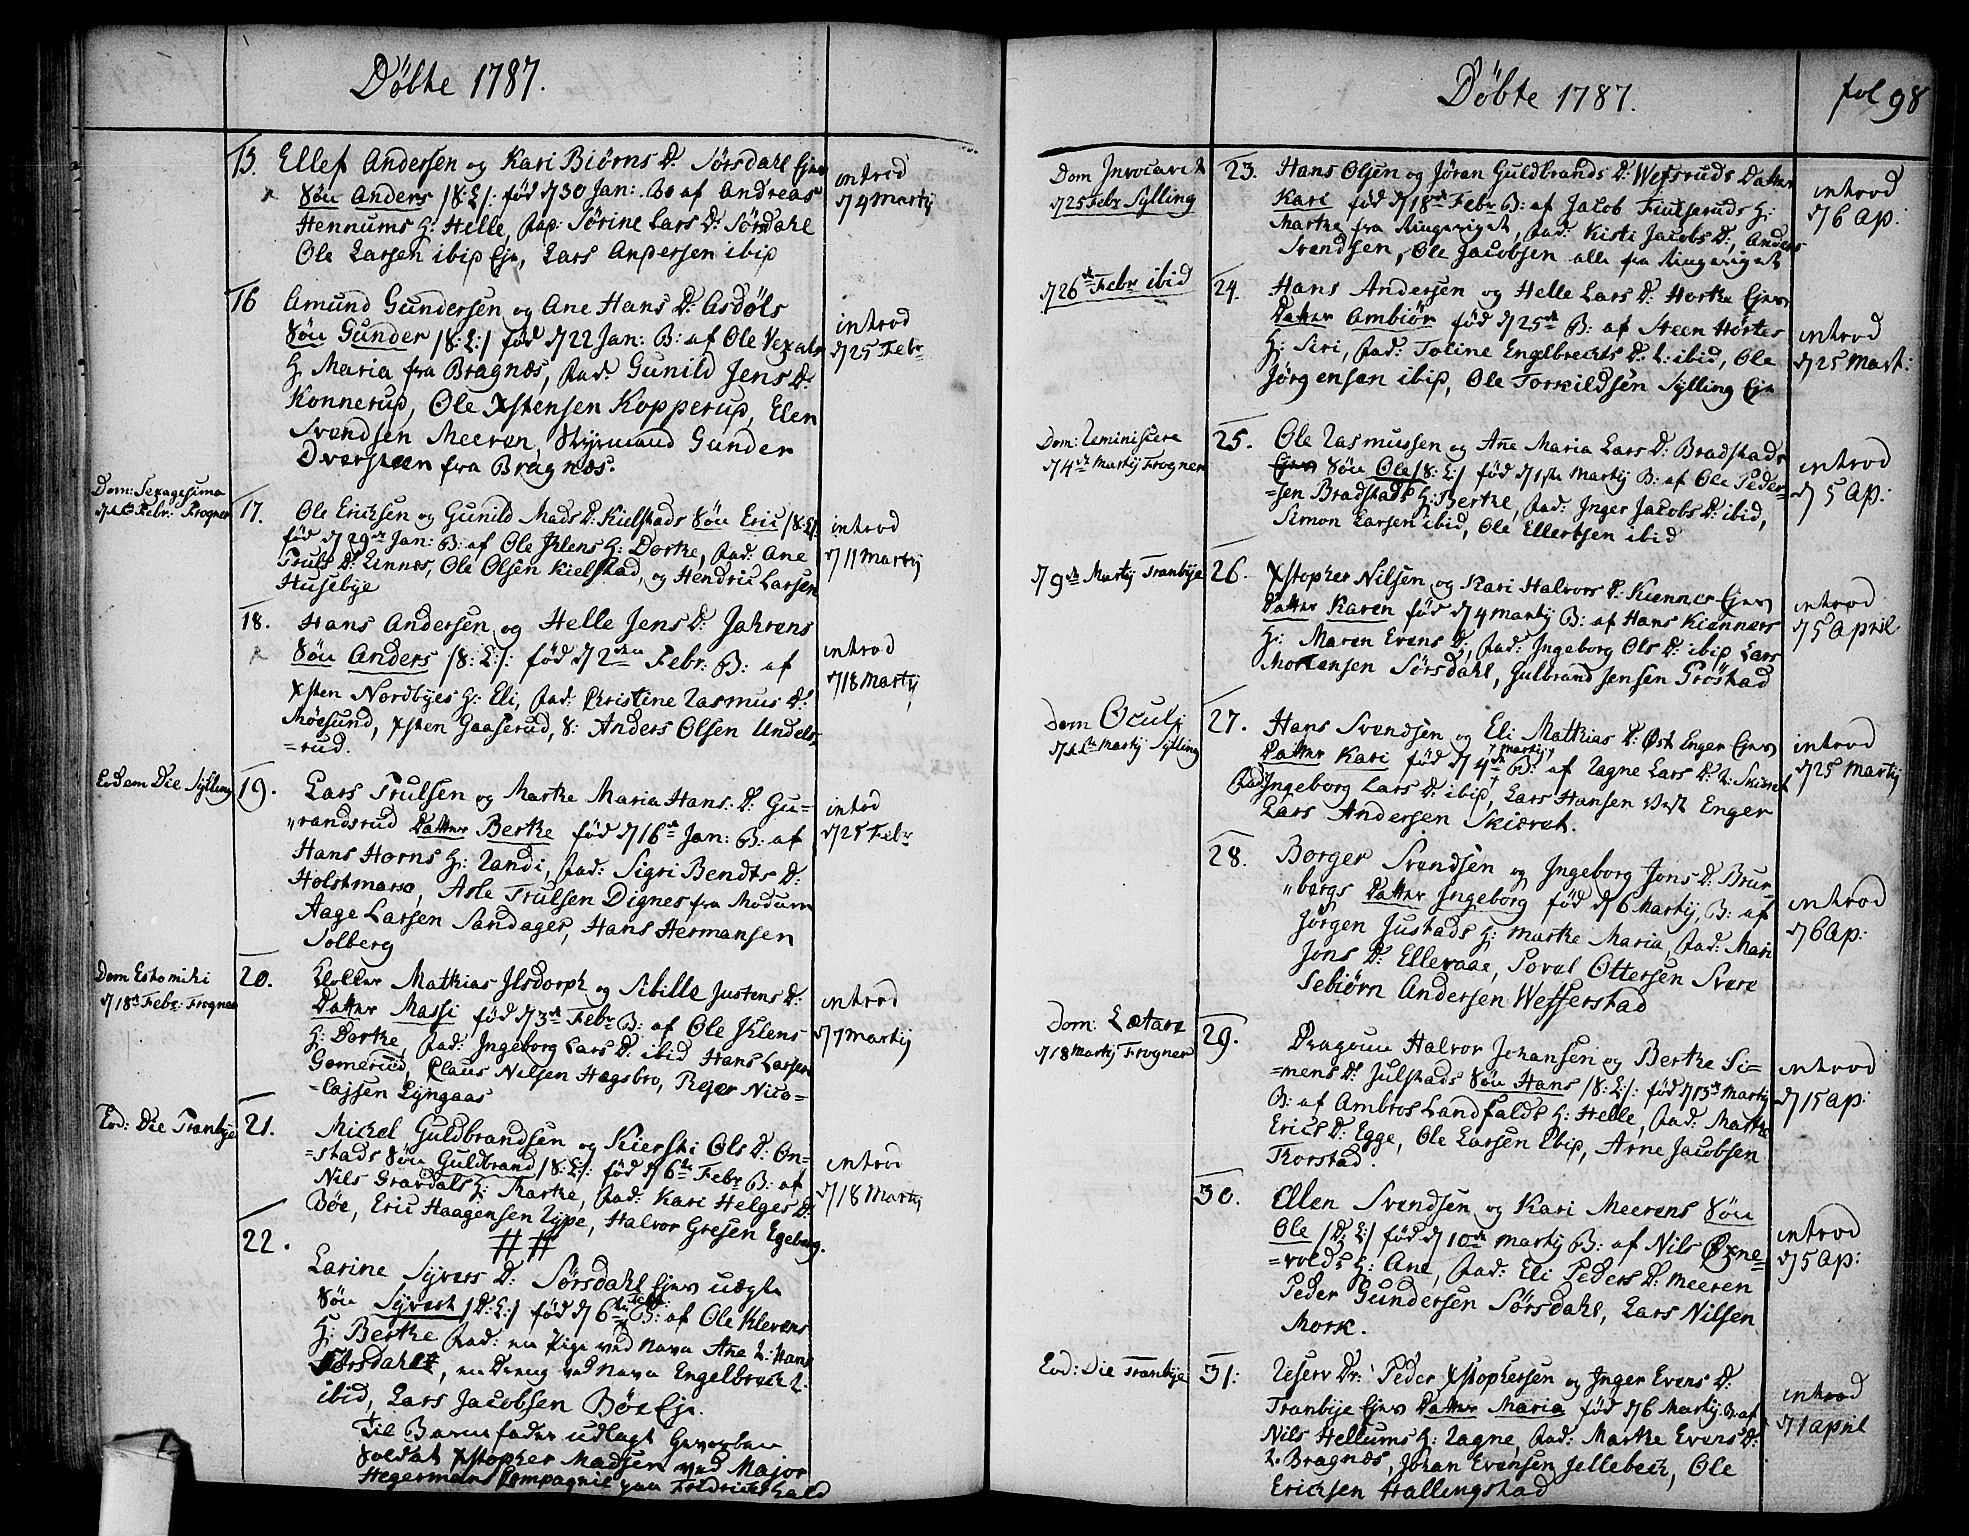 Döbte 1787.
15. Ellef Andersen og Kari Biörns D: Sörsdahl Ejer
Sön Anders /S:E/: föd d 30 Jan: B: af Andreas
Hennums H: Helle, fad: Sörine Lars D: Sörsdahl
Ole Larsen ibid Eje, Lars Andersen ibid
introd
d 4 Martij
16 Amund Gundersen og Ane Hans D: Asdöls
Sön Gunder /S:E/ föd d 22 Jan: B: af Ole
H: Maria fra Bragnæs, fad: Gunild Jens D:
Konnerud, Ole Xstensen Kopperud, Elen
Svendsen Meeren, Styrmand Gunder
fra Bragnæs.
introd
d 25 Febr
Dom: Sexagesima
d 11te Febr: Frogner
17. Ole Ericksen og Gunild Mads D: Kielstads Sön Eric /S:E/:
föd d 29de Jan: B: af Ole Klens H: Dorke, fad: Ane
Truls D: Linnes, Ole Olsen Kielstad, og Hendric Larsen
Husebye
introd
d 11 Martij
18. Hans Andersen og Helle Jens D: Jahrens
Sön Anders /S:E/: föd d 2den Febr: B: af
Xsten Nordbyes H: Eli, fad: Christine Rasmus D:
Möesund, Xsten Gaaserud, S: Anders Olsen Undels-
=rud.
introd
d 18 Martij
Eodem Die Sylling
19. Lars Trulsen og Marte Maria Hans D: Gu=
"randsrud Datter Berte föd d 16de Jan: B: af
Hans Horns H: Randi, fad: Sigri Bendts D:
Holstmarc, Asle Trulsen Dignes fra Modum
Aage Larsen Sandager, Hans Hermansen
Solberg
introd
d 25 Febr
Dom Estomihi
d 18de Febr: Frogner
20. Mathias Ilsdorph og Sibille Justens D:
Datter Massi föd d 3de Febr B: af Ole Klens
H: Dorte, fad: Ingeborg Lars D: ibid Hans Larsen
Gomerud, Claus Nilsen Hægsbro, Rejer Nico=
=lajsen Lyngaas
introd
d 7 Martij
Eod: Die Tranbye
21. Mickel Guldbrandsen og Kiersti Ols D: On=
=stads Sön Guldbrand /S:E/: föd d 6te Febr B: af
Nils Gravdals H: Marte, fad: Kari Helges D:
Böe, Eric Haagensen Rype, Halvor Gresen Egeberg.
introd
d 18 Martij
22. ##
Larine Syvers D: Sörsdahl Ejer uægte
Sön Syvert /D:E/ föd d 6te Febr: B: af Ole Klevens
H: Berte fad: en Pige ved Navn Ane L: Hans
Sörsdahl, en Dreng ved Navn Engelbreck L:
ibid, Lars Jacobsen Böe Eje.
Til Barnefader udlagt Gevorben
Soldat Xstopher Madsen ved Major
Hegermans Compagnie paa Fredrickshald
Döbte 1787.
fol 98
Dom Invocavit
d 25 Febr Sylling
23. Hans Olsen og Jöran Guldbrands D: Wefsruds Datter
Kari föd d 18de Febr B: af Jacob H:
Marte fra Ringeriget, fad: Kisti Jacobs D:, Anders
Svendsen, Ole Jacobsen alle fra Ringeriget
introd
d 6 Ap:
d 26de Febr ibid
24. Hans Andersen og Helle Lars D: Horte Ejer
Datter Ambiör föd d 25de B: af Steen Hortes
H: Siri, fad: Toline Engelbrechts D: L: ibid, Ole
Jörgensen ibid, Ole Torkildsen Sylling Eje
introd
d 25 Mart:
Dom: Reminiscere
d 4de Martij Frogner
25. Ole Rasmussen og Ane Maria Lars D: Bradstads
Ejer Sön Ole /S:E/ föd d 1ste Martij B: af Ole Peder=
=sen Bradstads H: Berte, fad: Inger Jacobs D: ibid,
Simon Larsen ibid, Ole Ellertsen ibid
introd
d 5 Ap:
d 9de Martij Tranbye
26. Xstopher Nilsen og Kari Halvors D: Kiennes Ejer
Datter Karen föd d 4 Martij B: af Hans Kienners
H: Maren Evens D:, fad: Ingeborg Ols D: ibid Lars
Mortensen Sörsdahl, Gulbrand Jensen Gröstad
introd
d 5 April
Dom Oculi
d 11te Martij Sylling
27. Hans Svendsen og Eli Mathias D: Öst Enger Ejer
Datter Kari föd d 4de Martij B: af Ragne Lars D: L: Skiæret
fad: Ingeborg Lars D: ibid, Lars Hansen Vest Enger
Lars Andersen Skiæret.
introd
d 25 Martij
28. Borger Svendsen og Ingeborg Jons D: Brur
"bergs Datter Ingeborg föd d 6 Martij, B: af
Jörgen Justads H: Marte Maria, fad: Mari
Jons D: Ellevaae, Povel Ottersen Svere
Sebiörn Andersen Wefferstad
introd
d 6 Ap:
Dom: Lætare
d 18 Martij Frogner
29. Dragoun Halvor Johansen og Berte Si=
=mens D: Julstads Sön Hans /S:E/: föd d 13de Martij
B: af Ambros Landfalds H: Helle, fad: Marte
Erics D: Egge, Ole Larsen Ibid, Arne Jacobsen
Thorstad.
introd
d 15 Ap:
30. Ellen Svendsen og Kari Meerens Sön
Ole /D:E/ föd d 10de Martij B: af Nils Øxne=
=volds H: Ane, fad: Eli Peders D: Meeren
Peder Gundersen Sörsdahl, Lars Nilsen
Mork.
introd
d 5 Ap:
Eod: Die Tranbye
31: Reserv Dr: Peder Xstophersen og Inger Evens D:
Tranbye Ejer Datter Maria föd d 6 Martij B: af
Nils Hellums H: Ragne, fad: Marte Evens D:
L. Bragnæs, Johan Evensen Jellebeck, Ole
Ericksen Hallingstad
introd
d 1 April